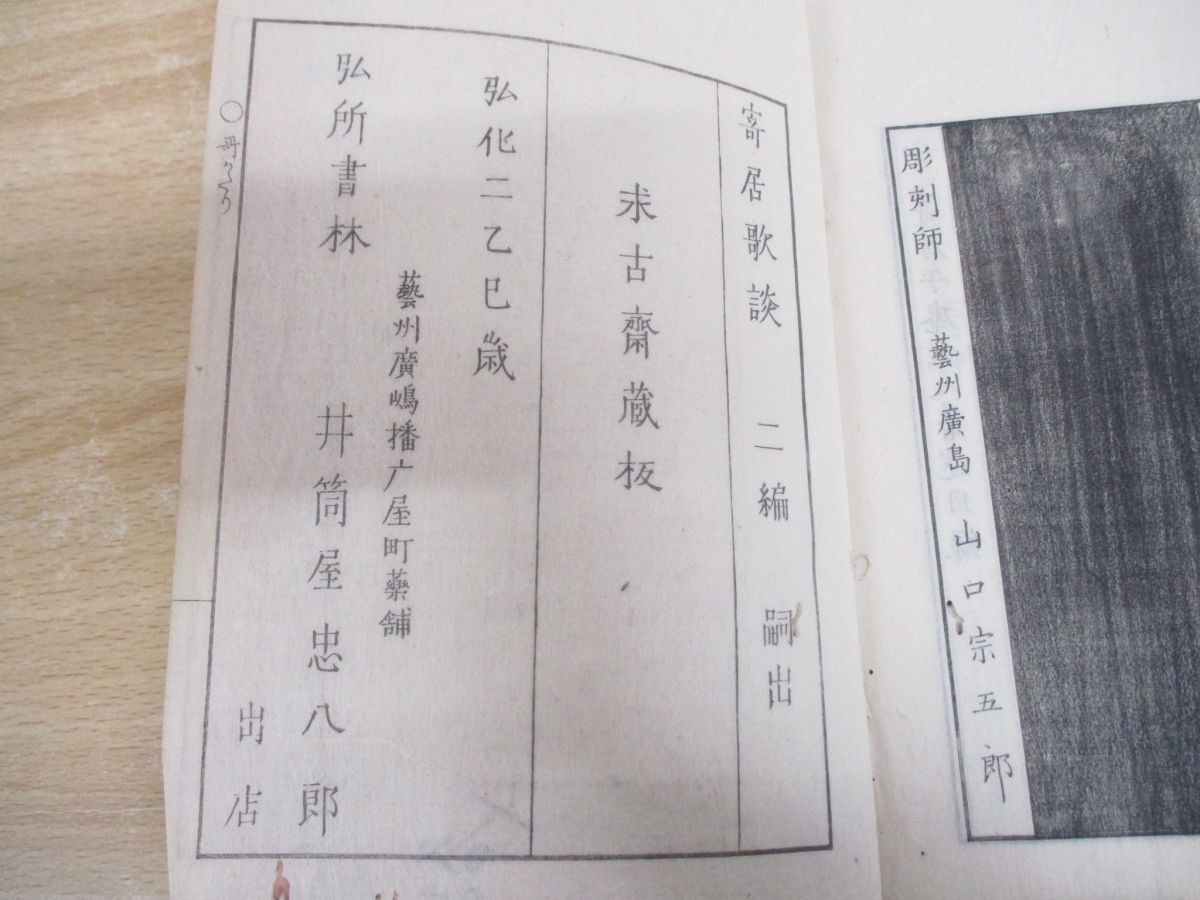 彫刻師 藝州廣島 山口宗五郎
寄居歌談 二編 嗣出
求古齋蔵板
弘化二乙巳歳
藝州廣嶋播广屋町藥舗
弘所書林 井筒屋忠八郎
出店